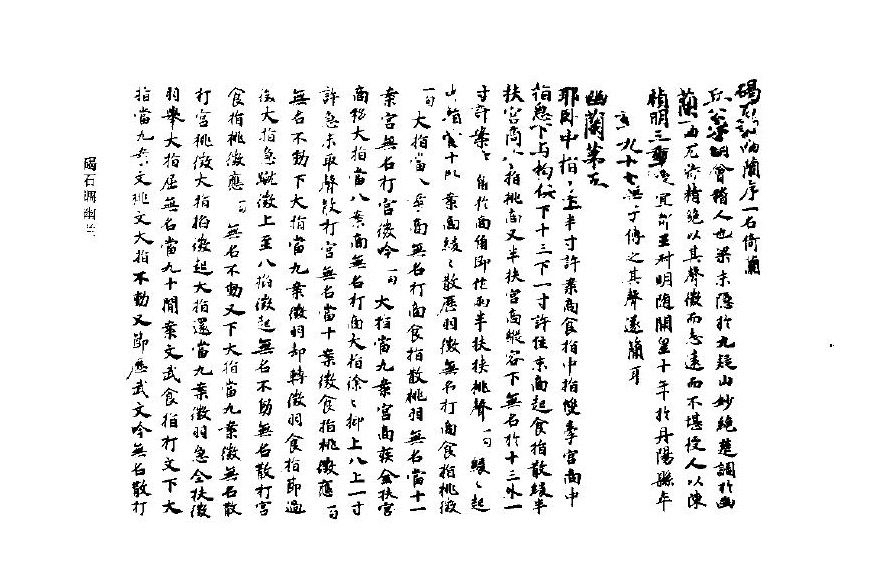 碣石調幽蘭序一名倚蘭
丘公字明會稽人也梁末隱於九疑山妙絕楚調於幽
蘭一曲尤特精絕以其聲微而志遠而不堪授人以陳
禎明三年授宜都王叔明隨開皇十年於丹陽縣卒
年九十七無子傳之其聲遂簡耳
幽蘭第五
耶臥中指半寸許案商食指中指雙牽宮商中
指急下与拘俱下十三下一寸許住末商起食指散緩半
扶宮商食指挑商又半扶宮商縱容下無名於十三外一
寸許案角於商角即作兩半扶挾挑聲一句緩緩起
指當十案商緩緩散歷羽徵無名打商食指挑徵
一句大指當八案商無名打商食指散挑羽無名當十一
案宮無名打宮徵吟一句大指當九案宮商疾全扶宮
商移大指當八案商無名打商大指徐徐抑上八上一寸
許急末取聲散打宮無名當十案徵食指挑徵應一句
無名不動下大指當九案徵羽却轉徵羽食指節過
後大指急蹴徵上至八拍徵起無名不動無名散打宮
食指挑徵應一句無名不動又下大指當九案徵無名散
打宮挑徵大指掐徵起大指還當九案徵羽急全扶徵
羽舉大指屈無名當九十間案文武食指打文下大
指當九案文挑文大指不動又節歷武文吟無名散打
碣石調幽兰